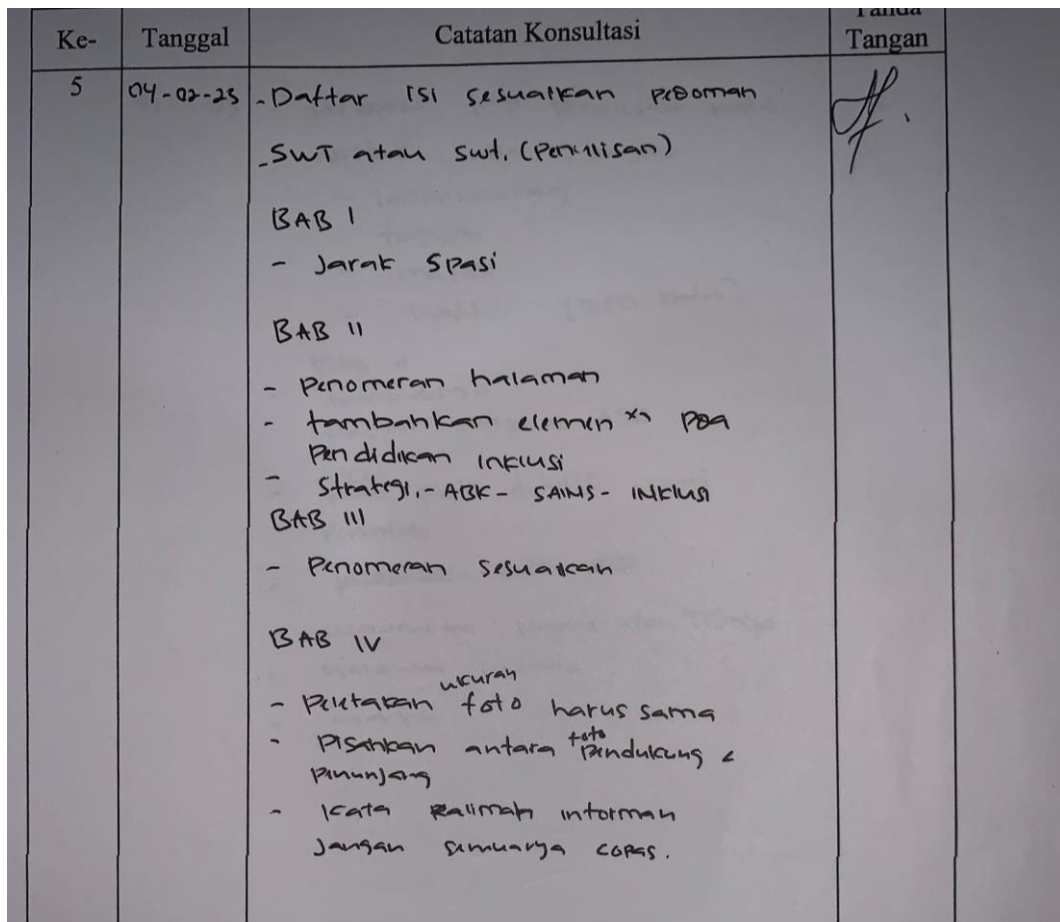 Ke- Tanggal Catatan Konsultasi Tanda Tangan
5 04-02-23 - Daftar isi sesuaikan pedoman
- SWT atau swt. (Penulisan)
BAB I
- Jarak Spasi
BAB II
- Penomeran halaman
- tambahkan elemen pda
Pendidikan inklusi
- Strategi. - ABK - SAINS - INKlusi
BAB III
- Penomeran sesuaikan
BAB IV
- Peletakan ukuran foto harus sama
- Pisahkan antara foto pendukung &
penunjang
- Kata kalimah informan
Jangan semuanya copas.